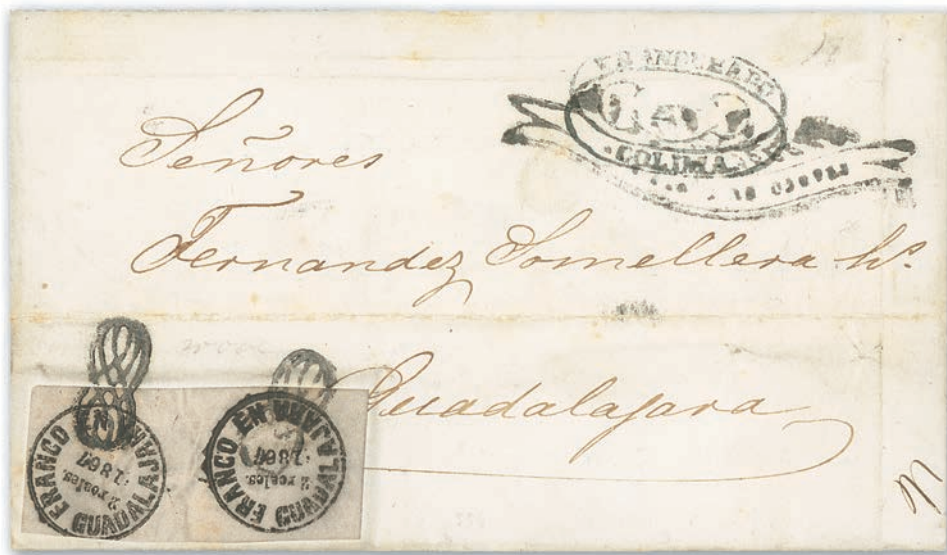 COLIMA
Señores
Fernandez Somellera h.º
Guadalajara
FRANCO EN GUADALAJARA
2 reales.
1867
FRANCO EN GUADALAJARA
2 reales.
1867